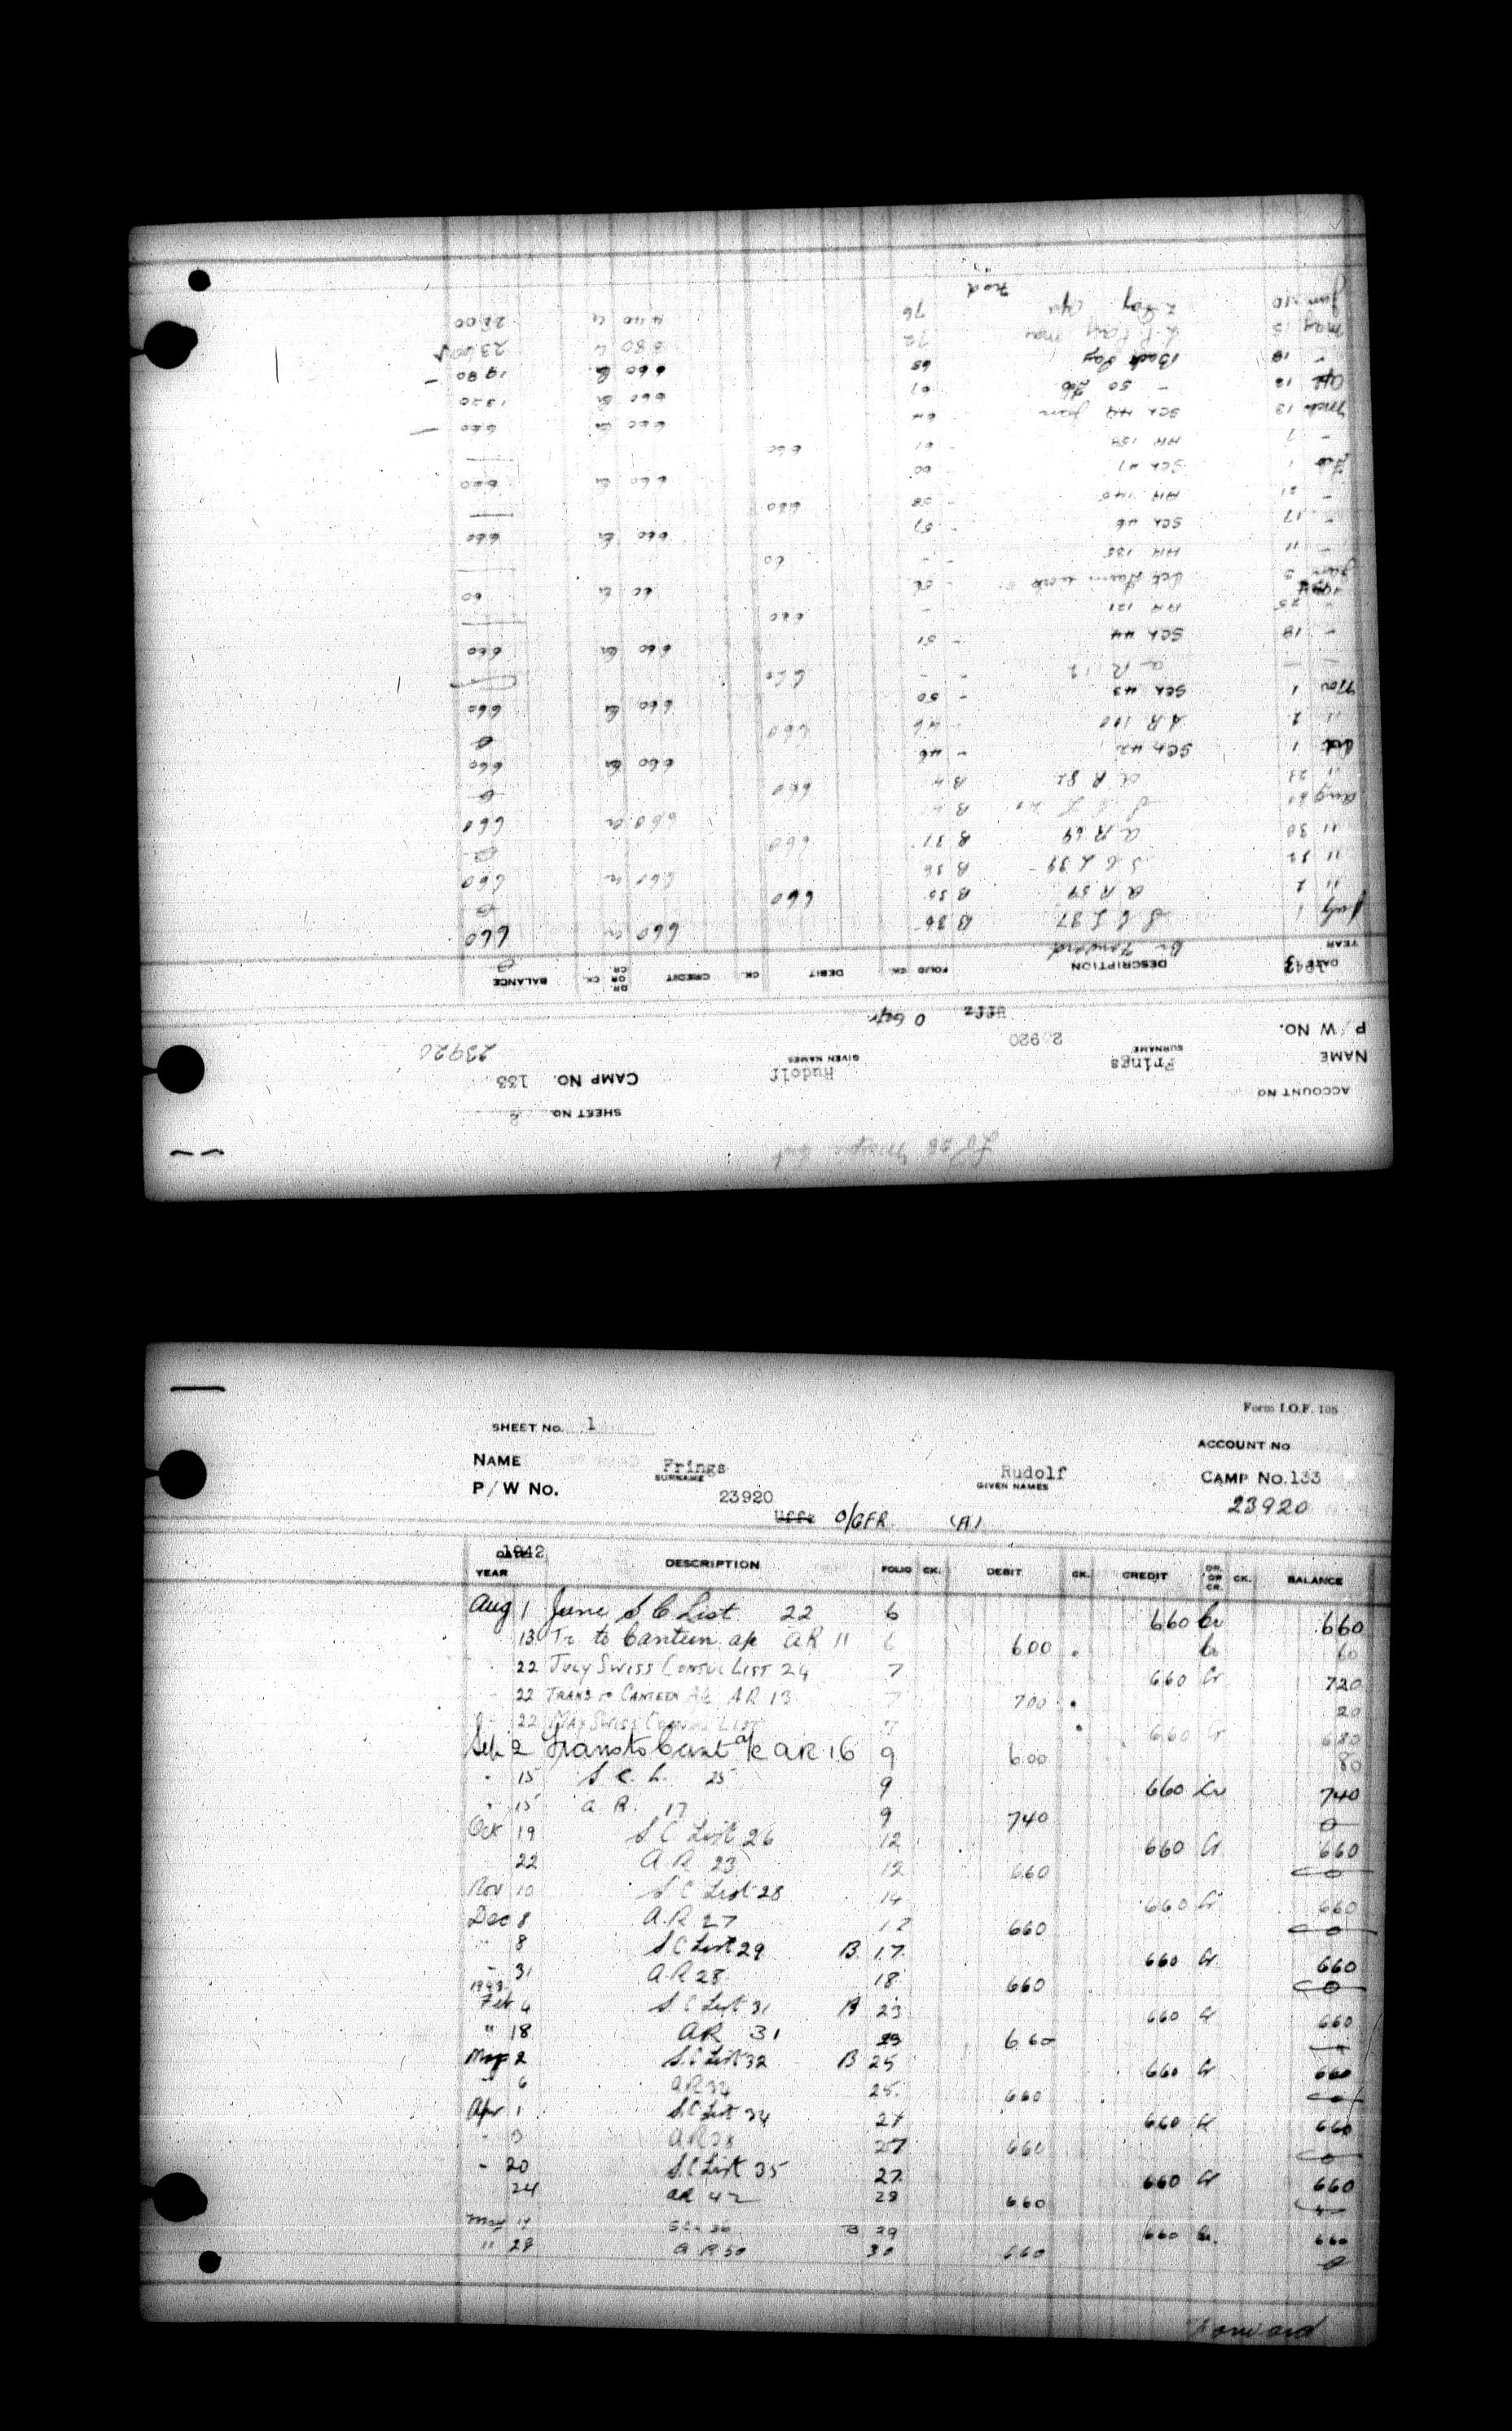 Form I.O.F. 105
SHEET No. 1
ACCOUNT No
NAME Frings Rudolf CAMP No. 133
SURNAME GIVEN NAMES
P/W No. 23920 23920
Uffz O/GFR (A)
1942
DATE YEAR DESCRIPTION FOLIO CK. DEBIT CK. CREDIT DR. OR CR. CK. BALANCE
Aug 1 June S C List 22 6 660 Cr 660
13 Tr to Canteen a/c AR 11 6 600 Cr 60
22 July Swiss Consul List 24 7 660 Cr 720
22 Trans to Canteen A/c AR 13 7 700 20
22 May Swiss Consul List 7 660 Cr 680
Sep 2 Trans to Cant a/c AR 16 9 600 80
" 15 S. C. L. 25 9 660 Cr 740
" 15 A R. 17 9 740 0
Oct 19 S C List 26 12 660 Cr 660
22 A.R 23 12 660 0
Nov 10 S C List 28 14 660 Cr 660
Dec 8 A.R 27 17 660 0
" 8 S C List 29 B 17 660 Cr 660
" 31 A.R 28 18 660 0
1943
Feb 4 S C List 31 B 23 660 Cr 660
" 18 AR 31 23 660
2 S.C List 32 B 25 660 Cr 660
6 AR 25 660 0
Apr 1 S.C List 34 27 660 Cr 660
" 3 AR 38 27 660 0
" 20 S.C List 35 27 660 Cr 660
24 AR 42 28 660
May 14 36 B 29 660 Cr. 660
" 28 A R 50 30 660 0
Forward
SHEET No. 2
ACCOUNT No
NAME Frings Rudolf CAMP No. 133
SURNAME GIVEN NAMES
P/W No. 23920 23920
Uffz O Gfr
1943
DATE YEAR DESCRIPTION FOLIO CK. DEBIT CK. CREDIT DR. OR CR. CK. BALANCE
Br Forward 0
July 1 S C L 37 B 36 660 Cr 660
" 2 A R 59 B 35 660 0
" S C L 39 B 36 660 Cr 660
" 30 A R 69 B 37 660 0
Aug S C L B 660 Cr 660
" 23 A R 82 B 660 0
Oct 1 SCL 42 - 46 660 Cr 660
" 2 A R 100 - 46 660 0
Nov 1 SCL 43 - 50 660 Cr 660
- - A R - - 660
- 18 SCL 44 - 51 660 Cr 660
- 25 AR 121 - 660
1944
Jan 5 Oct Farm work - 60 Cr 60
- 11 AR 135 - - 60
- 17 SCL 46 - 57 660 Cr 660
- 21 AR 140 - 58 660
Feb 1 SCL 47 - 60 660 Cr 660
- 7 AR - 61 660
Mch 13 SCL 49 Jan - 64 660 Cr 660
Apl 12 - 50 Feb - 67 660 Cr 1320
- 18 Back Pay 68 660 Cr 1980
May 15 Pay Mar 72 380 Cr
Jun 10 Pay Apl 76 440 Cr 2800